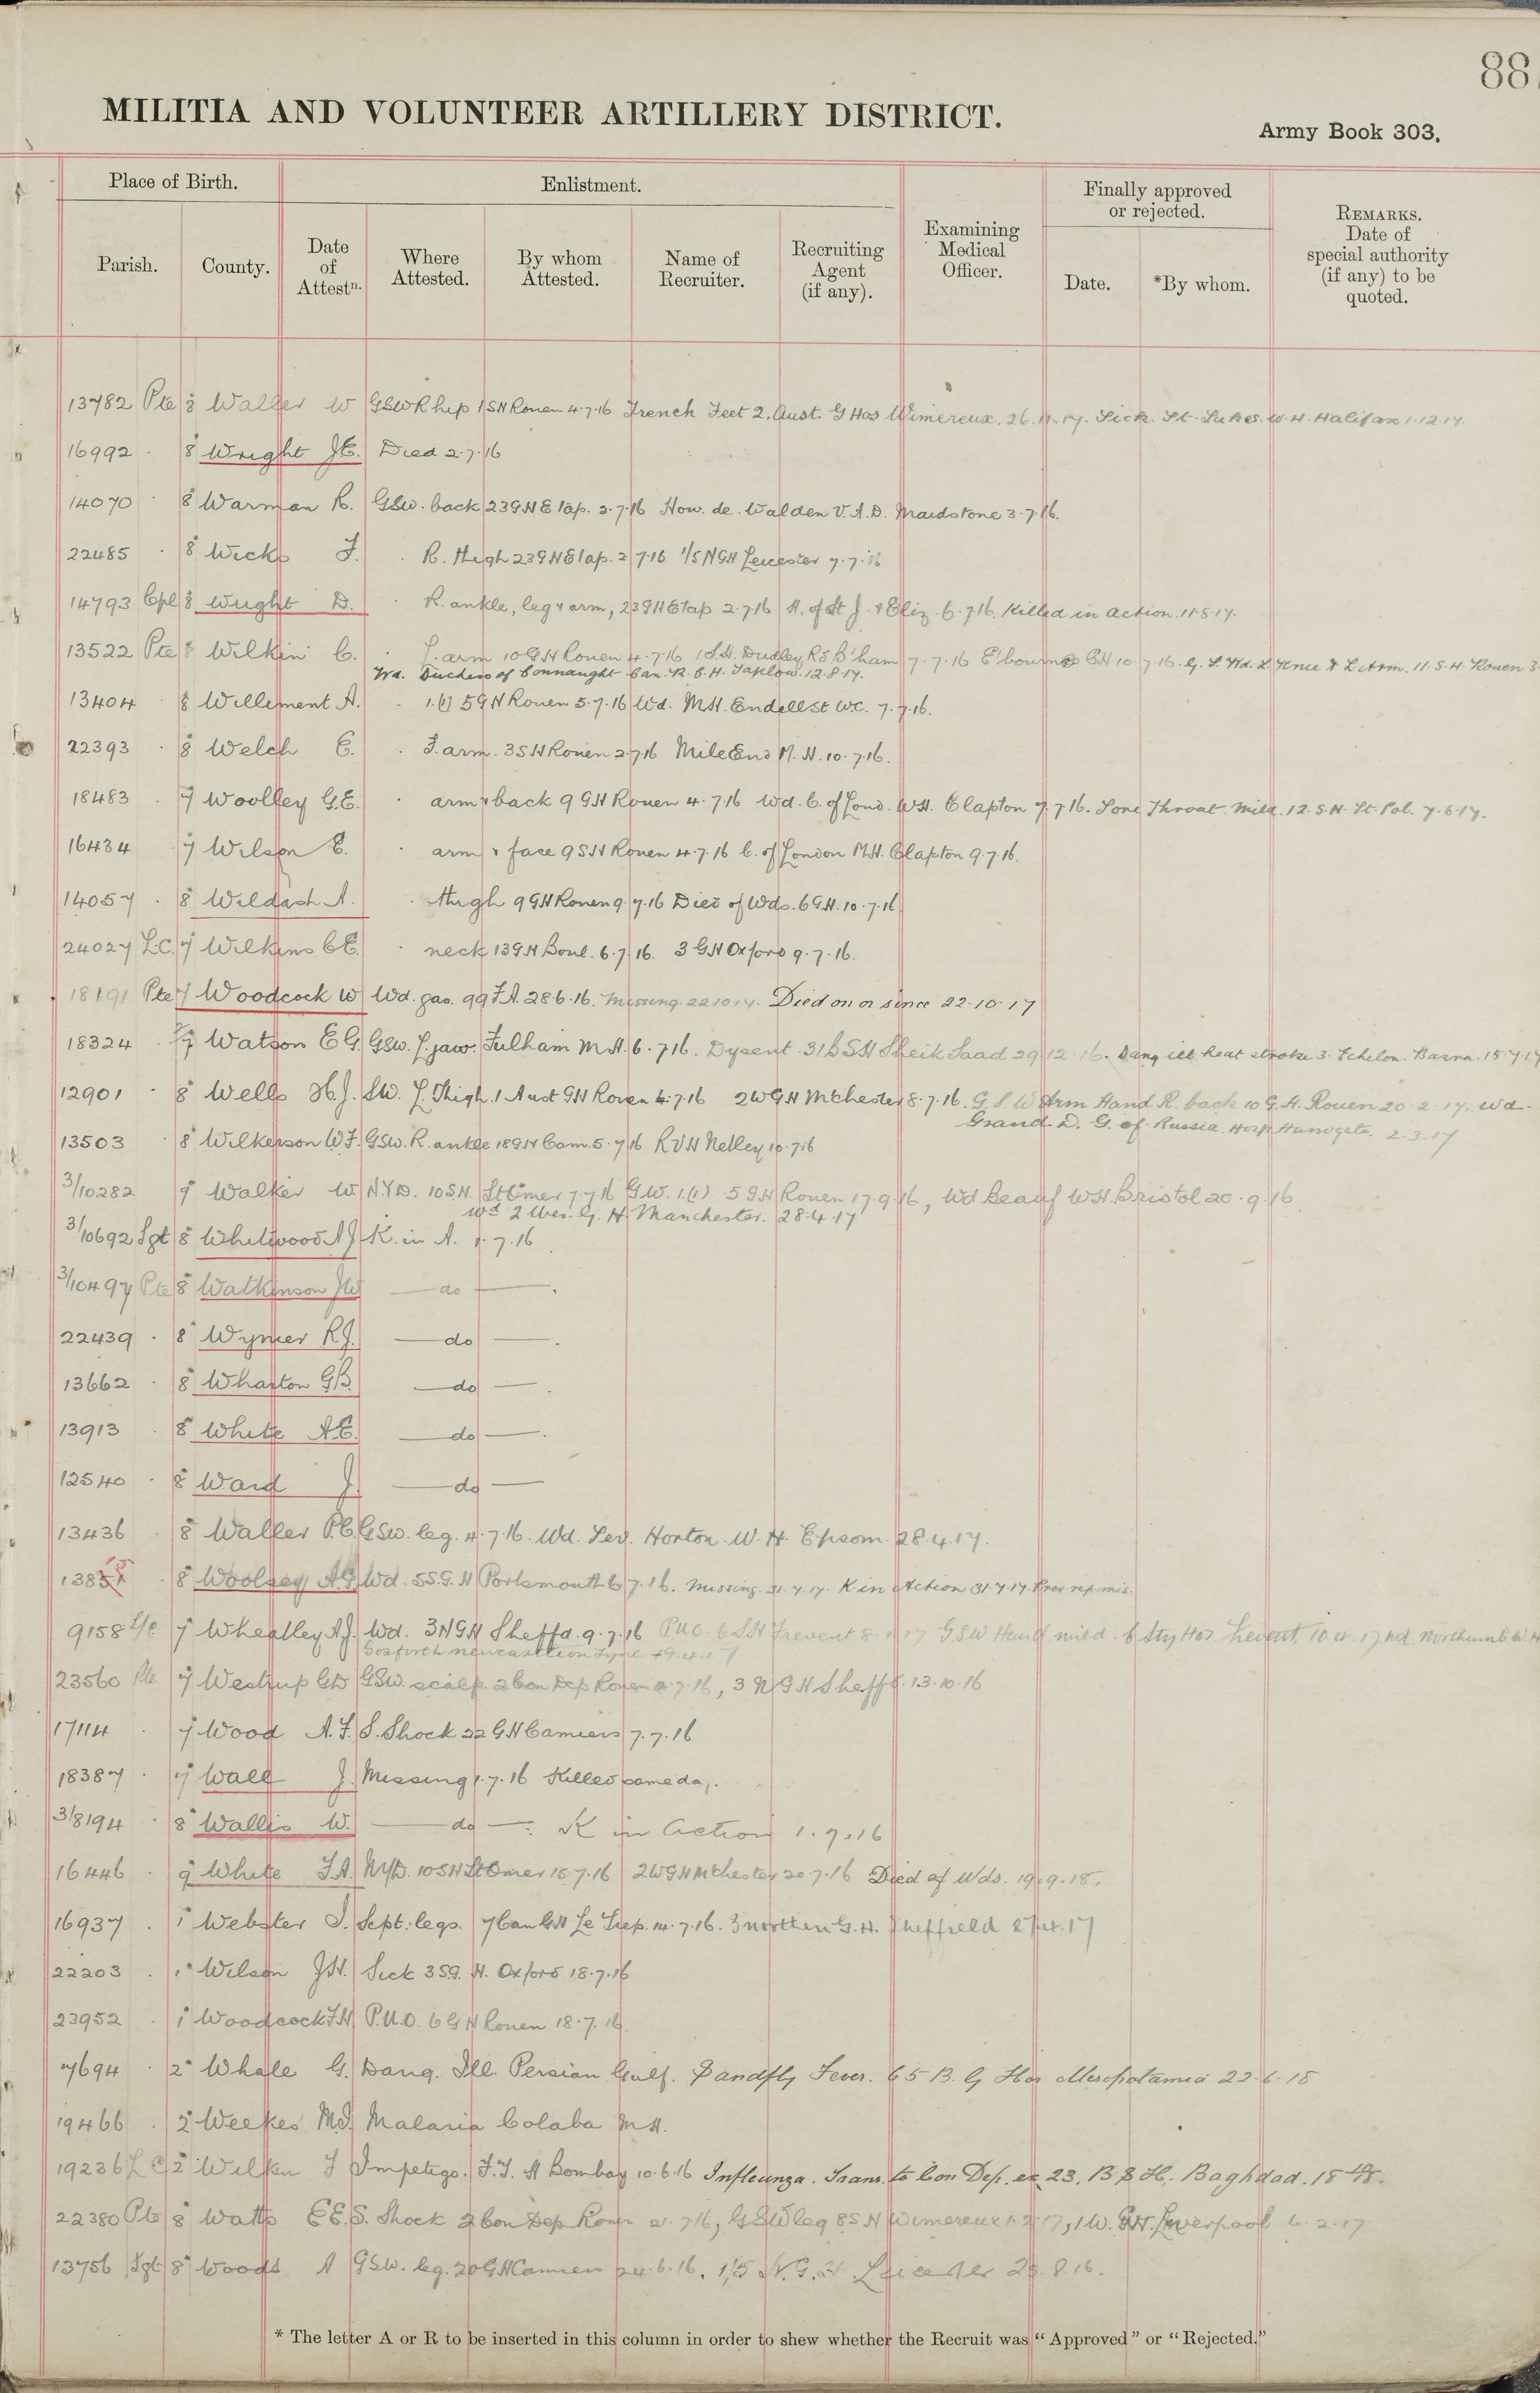 88.
MILITIA AND VOLUNTEER ARTILLERY DISTRICT.
Army Book 303.
Place of Birth.
Enlistment.
Finally approved or rejected.
Parish.
County.
Date of Attestn.
Where Attested.
By whom Attested.
Name of Recruiter.
Recruiting Agent (if any).
Examining Medical Officer.
Date.
*By whom.
REMARKS. Date of special authority (if any) to be quoted.
13782 Pte 8 Waller W GSW R hip 1 SH Rouen 4.7.16 Trench Feet 2. Aust. G Hos Wimereux. 26.11.17. Sick. St. Lukes. W.H. Halifax 1.12.17.
16992 . 8 Wright J.E. Died 2.7.16
14070 . 8 Warman R. GSW. back 23 GH Etap. 2.7.16 How. de. Walden V.A.D. Maidstone 3.7.16.
22485 . 8 Wicks F. . R. thigh 23 GH Etap. 2.7.16 1/5 NGH Leicester 7.7.16
14793 Cpl 8 Wright D. . R. ankle, leg & arm, 23 GH Etap 2.7.16 H. of St J. & Eliz. 6.7.16. Killed in action. 11.8.17.
13522 Pte 8 Wilkin C. . L. arm 10 GH Rouen 4.7.16 1 S.H. Dudley Rd B'ham 7.7.16 E'bourne CH 10.7.16. G.S. Wd. L Knee & L Arm. 11.S.H. Rouen 3
Wd. Duchess of Connaught Can. R. C. H. Taplow. 12.8.17.
13404 . 8 Willement A. . 1.(1) 5 GH Rouen 5.7.16 Wd. MH. Endell St W.C. 7.7.16.
22393 . 8 Welch E. . F. arm. 3 SH Rouen 2.7.16 Mile End M.H. 10.7.16.
18483 . 7 Woolley G.E. . arm & back 9 GH Rouen 4.7.16 Wd. C. of Lond. WH. Clapton 7.7.16. Sore Throat. Mild. 12.S.H. St. Pol. 7.6.17.
16434 7 Wilson E. . arm & face 9 SH Rouen 4.7.16 C. of London M.H. Clapton 9.7.16.
14057 . 8 Wildash A. . thigh 9 GH Rouen 9.7.16 Died of Wds. 6 G.H. 10.7.16
24027 L.C. 7 Wilkins C.E. . neck 13 GH Boul. 6.7.16. 3 GH Oxford 9.7.16.
18191 Pte 7 Woodcock W Wd. gas. 99 F.A. 28.6.16. Missing. 22.10.17. Died on or since 22.10.17
18324 . 7 Watson E G. GSW. L. jaw. Fulham M.H. 6.7.16. Dysent. 31 B S H Sheik Saad 29.12.16. Dang ill heat stroke 3. Echelon. Basra. 15.7.17
12901 . 8 Wells H.J. SW. L. Thigh. 1 Aust GH Rouen 4.7.16 2 W G H Mchester 8.7.16. G.S.W Arm Hand R. back 10 G.H. Rouen 20.2.17. Wd.
Grand. D. G. of Russia. Hosp. Harrogate. 2.3.17
13503 . 8 Wilkerson W.F. GSW. R. ankle 18 GH Cam. 5.7.16 R V H Netley 10.7.16
3/10282 9 Walker W N.Y.D. 10 S.H. St Omer 7.7.16 G.W. 1.(1) 5 GH Rouen 17.9.16, Wd Beauf WH Bristol 20.9.16.
Wd 2 Wes. G. H. Manchester. 28.4.17
3/10692 Sgt 8 Whitwood A J K. in A. 1.7.16
3/10497 Pte 8 Watkinson J.W — do — .
22439 . 8 Wymer R.J. — do — .
13662 . 8 Wharton G.B. — do — .
13913 . 8 White A.E. — do — .
12540 . 8 Ward J. — do —
13436 . 8 Waller P.C. GSW. leg. 4.7.16. Wd. Sev. Horton. W. H. Epsom. 28.4.17.
1385 . 8 Woolsey A.G. Wd. 5 S.G.H Portsmouth 6.7.16. Missing. 31.7.17. K in Action 31.7.17. Prev. rep. mis.
9158 L/c 7 Wheatley A.J. Wd. 3 NGH Sheffd. 9.7.16 PUO. 6 S.H Frevent 8.1.17 G.S.W Hand mild. 6 Sty Hos. Frevent. 10.4.17. Wd. Northumb W. H
Gosforth Newcastle on Tyne. 19.4.17
23560 Pte 7 Westrup G.D GSW. scalp. 2 Con Dep Rouen 4.7.16, 3 N G H Sheffd. 13.10.16
17114 . 7 Wood A.F. S. Shock 22 GH Camiers 7.7.16
18387 . 7 Wall J. Missing 1.7.16 Killed same day.
3/8194 . 8 Wallis W. — do — . K in Action 1.7.16
16446 . 9 White F.A. N.Y.D. 10 SH St Omer 15.7.16 2 W G H Mchester 20.7.16 Died of Wds. 19.9.18.
16937 . 1 Webster S. Sept. legs. 7 Can G.H Le Trep. 14.7.16. 3 northern G.H. Sheffield 27.4.17
22203 . 1 Wilson J.H. Sick 3 S.G. H. Oxford 18.7.16
23952 . 1 Woodcock F.H. P.U.O. 6 G H Rouen 18.7.16.
7694 . 2 Whale G. Dang. Ill. Persian Gulf. Sandfly Fever. 65 B. G Hos Mesopotamia 22.6.18
19466 . 2 Weekes M.J. Malaria Colaba M H.
19236 L C 2 Wilkin F Impetigo. F.F. H Bombay 10.6.16 Influenza. Trans. to Con Dep. ex 23. B S H. Baghdad. 15
22380 Pte 8 Watts E E. S. Shock 2 Con Dep Rouen 21.7.16, GSW leg 8 S H Wimereux 1.2.17, 1 W. GH. Liverpool 6.2.17
13756 Sgt 8 Woods A GSW. leg. 20 GH Camiers 24.6.16. 1/5 N.G.H Leicester 25.8.16.
* The letter A or R to be inserted in this column in order to shew whether the Recruit was "Approved" or "Rejected."